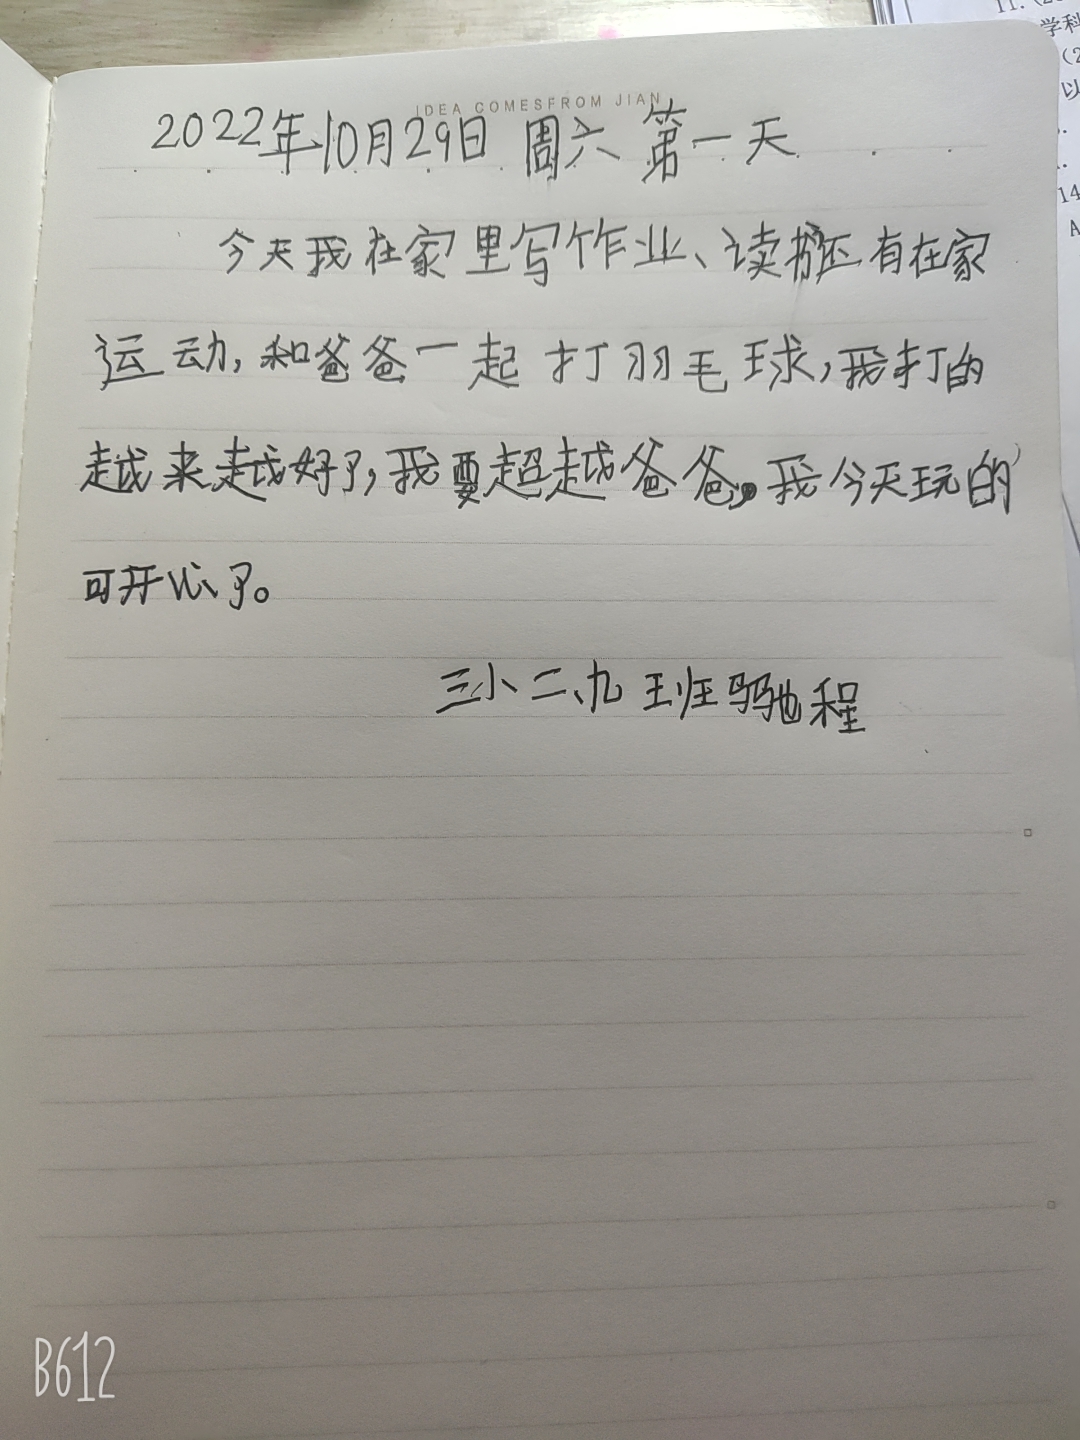 IDEA COMESFROM JIAN
2022年10月29日 周六 第一天
今天我在家里写作业、读书还有在家
运动,和爸爸一起打羽毛球,我打的
越来越好了,我要超越爸爸。我今天玩的
可开心了。
三小二、九王班驰程
11.(2
学科
(2
以
14
A
B612